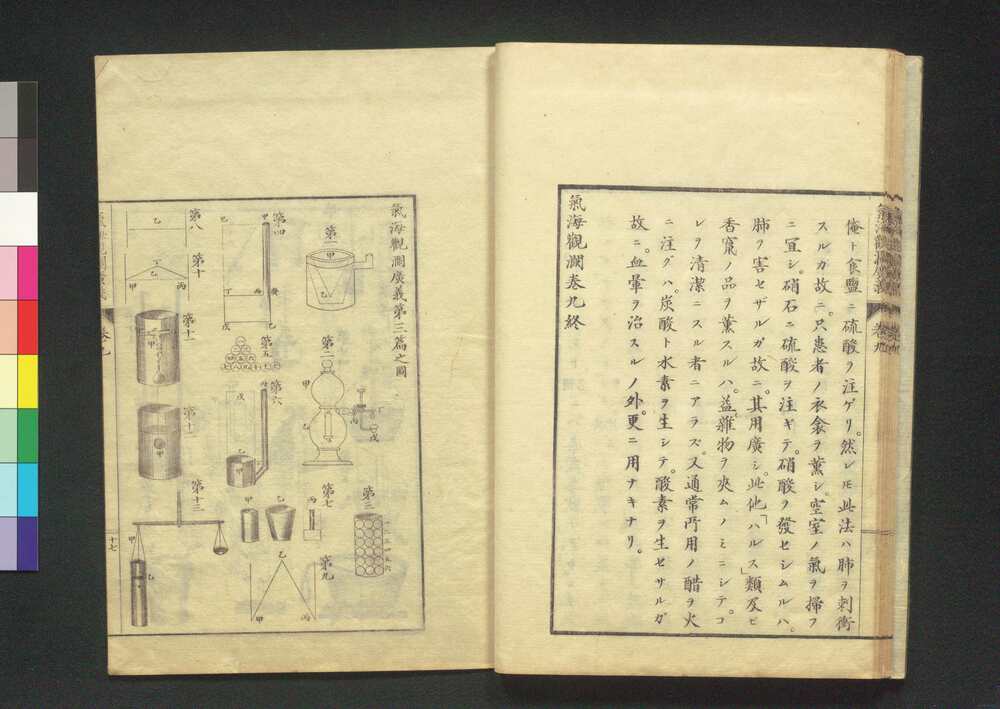 俺ト食盬ニ硫酸ヲ注ゲリ。然レ𪜈此法ハ肺ヲ刺衝
スルガ故ニ。只患者ノ衣衾ヲ薫シ。空室ノ氣ヲ掃フ
ニ宜シ。硝石ニ硫酸ヲ注ギテ。硝酸ヲ發セシムルハ。
肺ヲ害セザルガ故ニ。其用廣シ。此他「ハルス」類及ビ
香竄ノ品ヲ薫スルハ。益雜物ヲ夾ムノミニシテ。コ
レヲ清潔ニスル者ニアラズ。又通常所用ノ醋ヲ火
ニ注グハ。炭酸ト水素ヲ生シテ。酸素ヲ生セサルガ
故ニ。血暈ヲ治スルノ外。更ニ用ナキナリ。
氣海觀瀾卷九終
氣海觀瀾廣義
卷九
氣海觀瀾廣義第三篇之圖
第一
甲
乙
第二
甲
乙
丙
丁
戊
第三
一二三四五六
第四
甲
乙
丙
丁
戊
己
第五
第六
甲
乙
戊
第七
甲
乙
丙
第八
乙
第九
甲
乙
丙
第十
甲
乙
丙
丁
第十一
甲
第十二
甲
第十三
甲
乙
卷九
十七